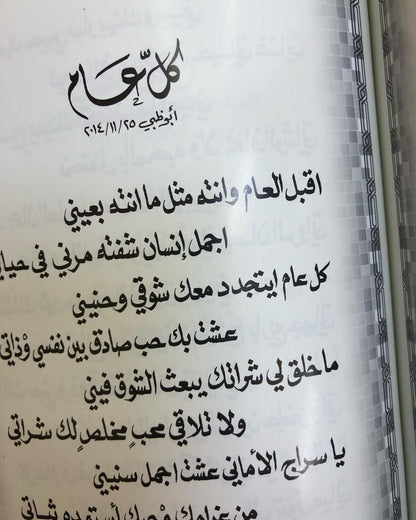 كل عام
أبوظبي ٢٠١٤/١١/٢٥
اقبل العام وانته مثل ما انته بعيني
اجمل إنسان شفته مرني في حياتي
كل عام ايتجدد معك شوقي وحنيني
عشت بك حب صادق بين نفسي وذاتي
ما خلق لي شراتك يبعث الشوق فيني
ولا تلاقي محبٍ مخلصٍ لك شراتي
يا سراج الأماني عشت اجمل سنيني
من غرامك وحبك أستمد ثباتي